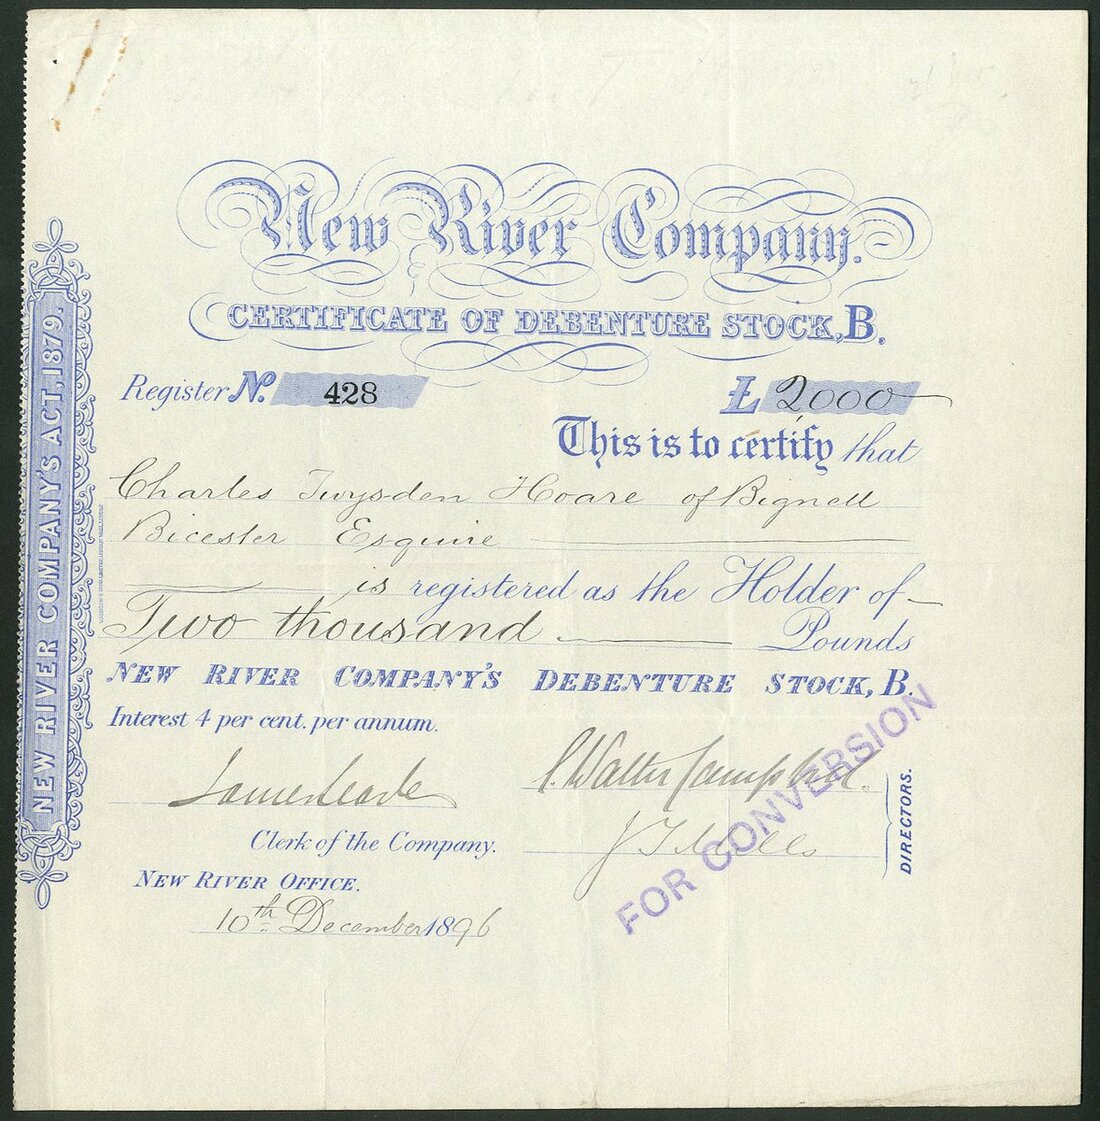 New River Company.
CERTIFICATE OF DEBENTURE STOCK, B.
Register No. 428 £ 2000
This is to certify that
Charles Twysden Hoare of Bignell
Bicester Esquire
is registered as the Holder of
Two thousand Pounds
NEW RIVER COMPANY'S DEBENTURE STOCK, B.
Interest 4 per cent. per annum.
Walter
Clerk of the Company.
DIRECTORS.
NEW RIVER OFFICE.
10th December 1896
FOR CONVERSION
NEW RIVER COMPANY'S ACT, 1879.